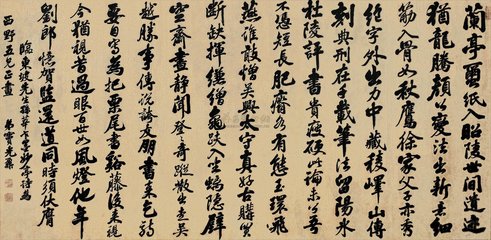 蘭亭繭紙入昭陵世間遺迹
猶龍騰顏公變法出新意細
筋入骨如秋鷹徐家父子亦秀
絕字外出力中藏稜嶧山傳
刻典刑在千載筆法留陽冰
杜陵評書貴瘦硬此論未公吾
不憑短長肥瘠各有態玉環飛
燕誰敢憎吳興太守真好古購買
斷缺揮縑繒龜趺入坐螭隱壁
空齋晝靜聞登登奇蹤散出走吳
越勝事傳說誇友朋書來乞詩
要自寫為把栗尾書谿藤後來視
今猶視昔過眼百世如風燈他年
劉郎憶賀監還道同時須伏膺
臨東坡先生孫莘老墨妙亭詩為
西野五兄正
弟